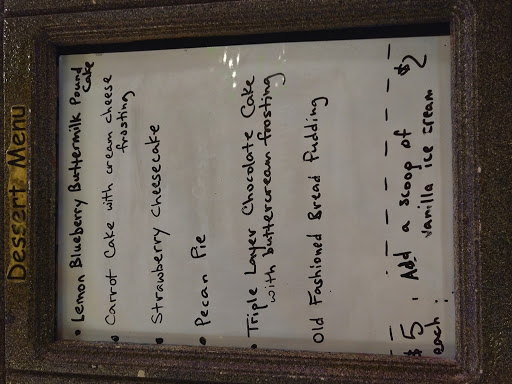 Dessert Menu
• Lemon Blueberry Buttermilk Pound
Cake
• Carrot Cake with cream cheese
frosting
• Strawberry Cheesecake
• Pecan Pie
• Triple Layer Chocolate Cake
with buttercream frosting
Old Fashioned Bread Pudding
$5 Add a scoop of $2
each vanilla ice cream